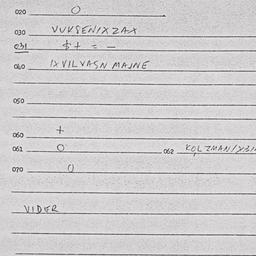 020 O
030 VUVSENIXZAX
031 $ + = -
040 IXVILVASN MAJNE
050
060 +
061 O 062 KOLZMAN/XBI
070 O
VIDER